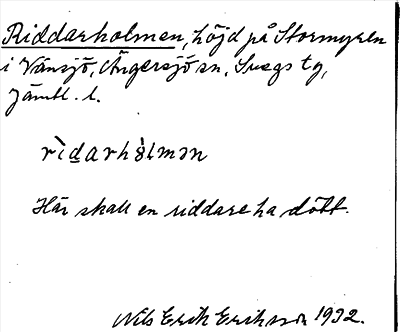 Riddarholmen, höjd på Stormyren
i Vänsjö, Ängersjö sn, Svegs tg,
Jämtl. l.
rìdarhòlmən
Här skall en riddare ha dött.
Nils Erik Eriksson 1932.